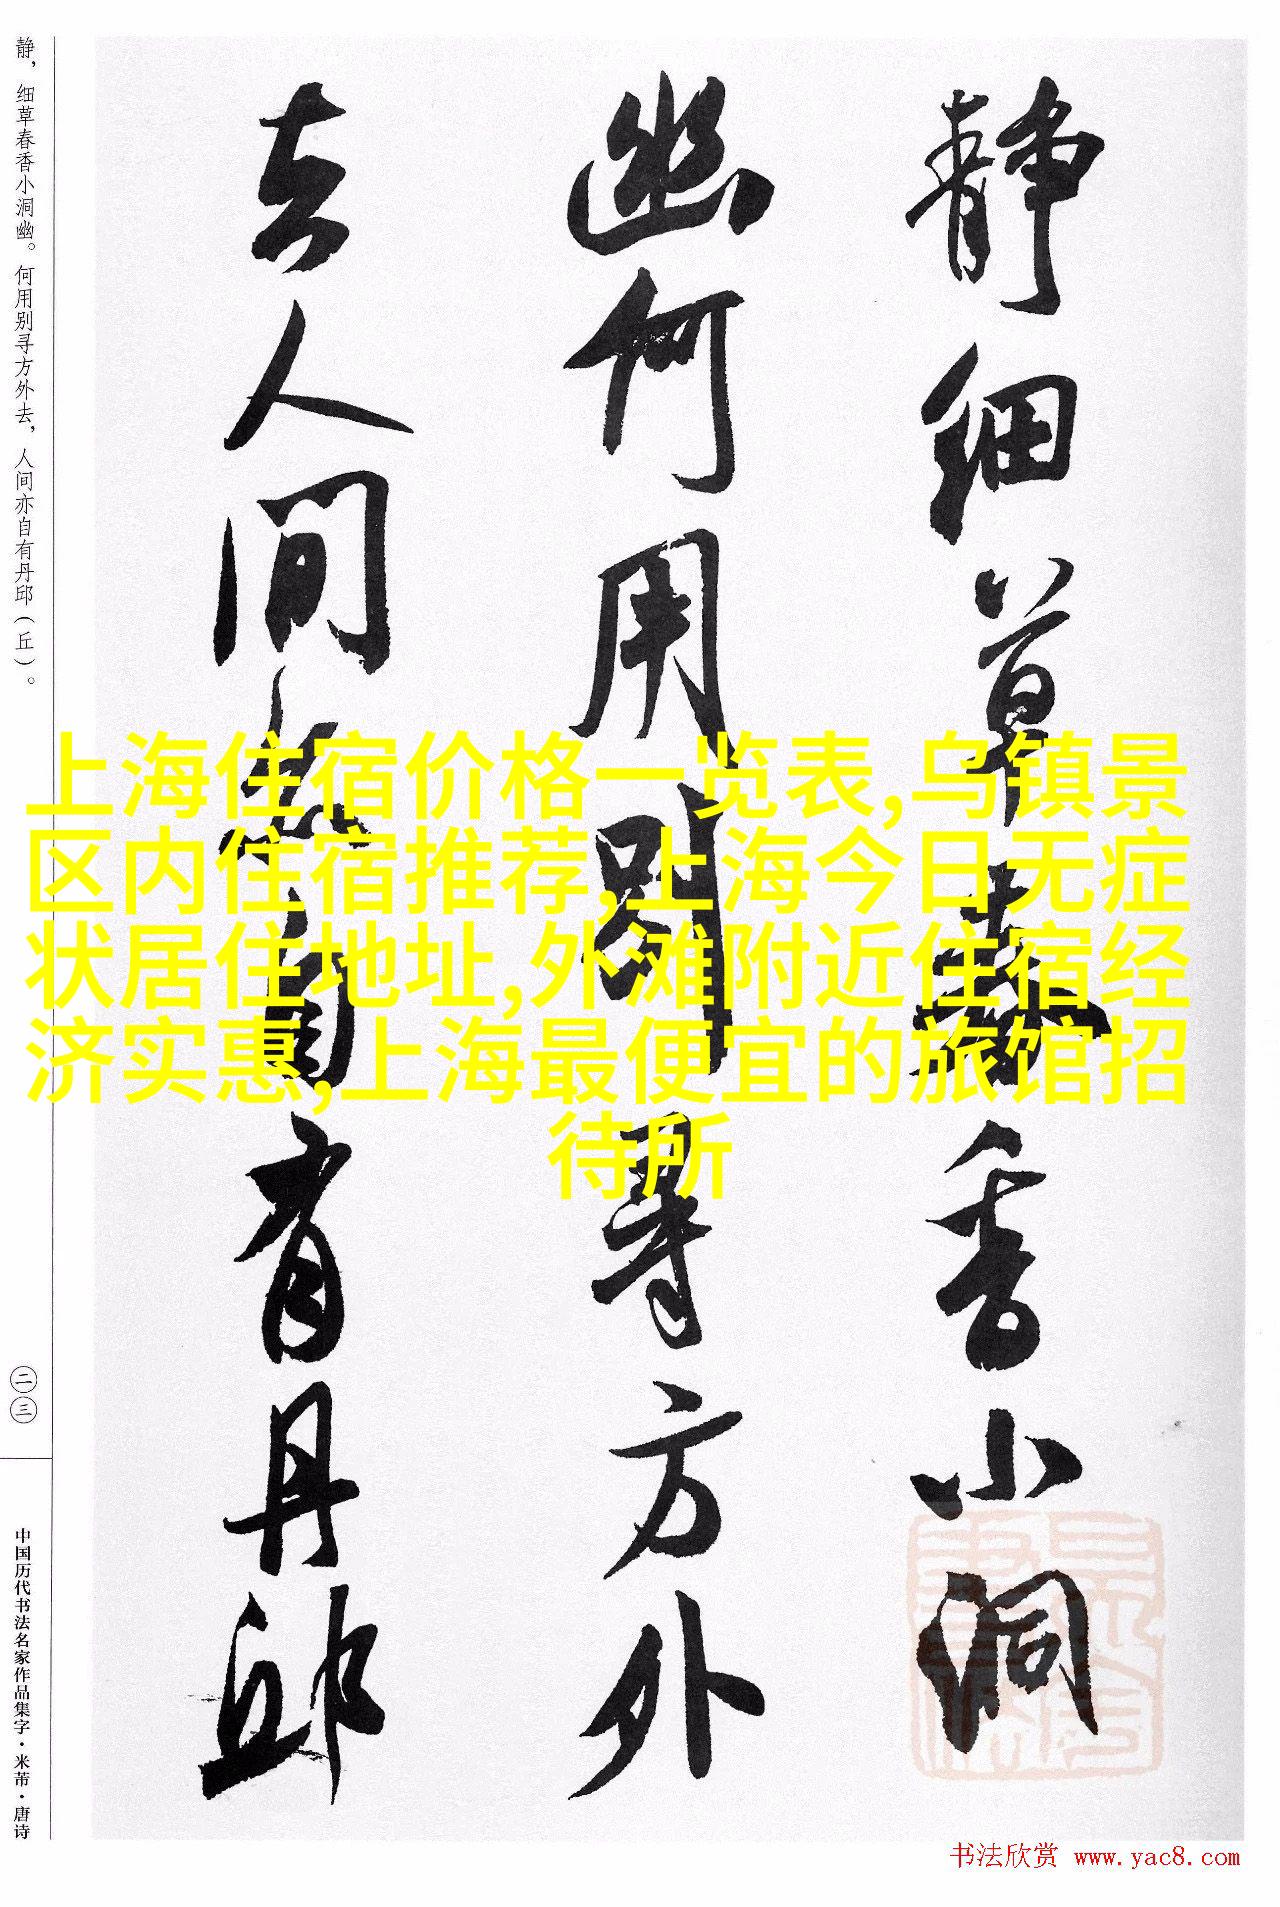 静细草春香小洞
幽何用别寻方外
去人间亦自有丹邱
静，细草春香小洞幽。何用别寻方外去，人间亦自有丹邱（丘）。
二三
中国历代书法名家作品集字·米芾·唐诗
上海住宿价格一览表,乌镇景
区内住宿推荐,上海今日无症
状居住地址,外滩附近住宿经
济实惠,上海最便宜的旅馆招
待所
书法欣赏 www.yac8.com